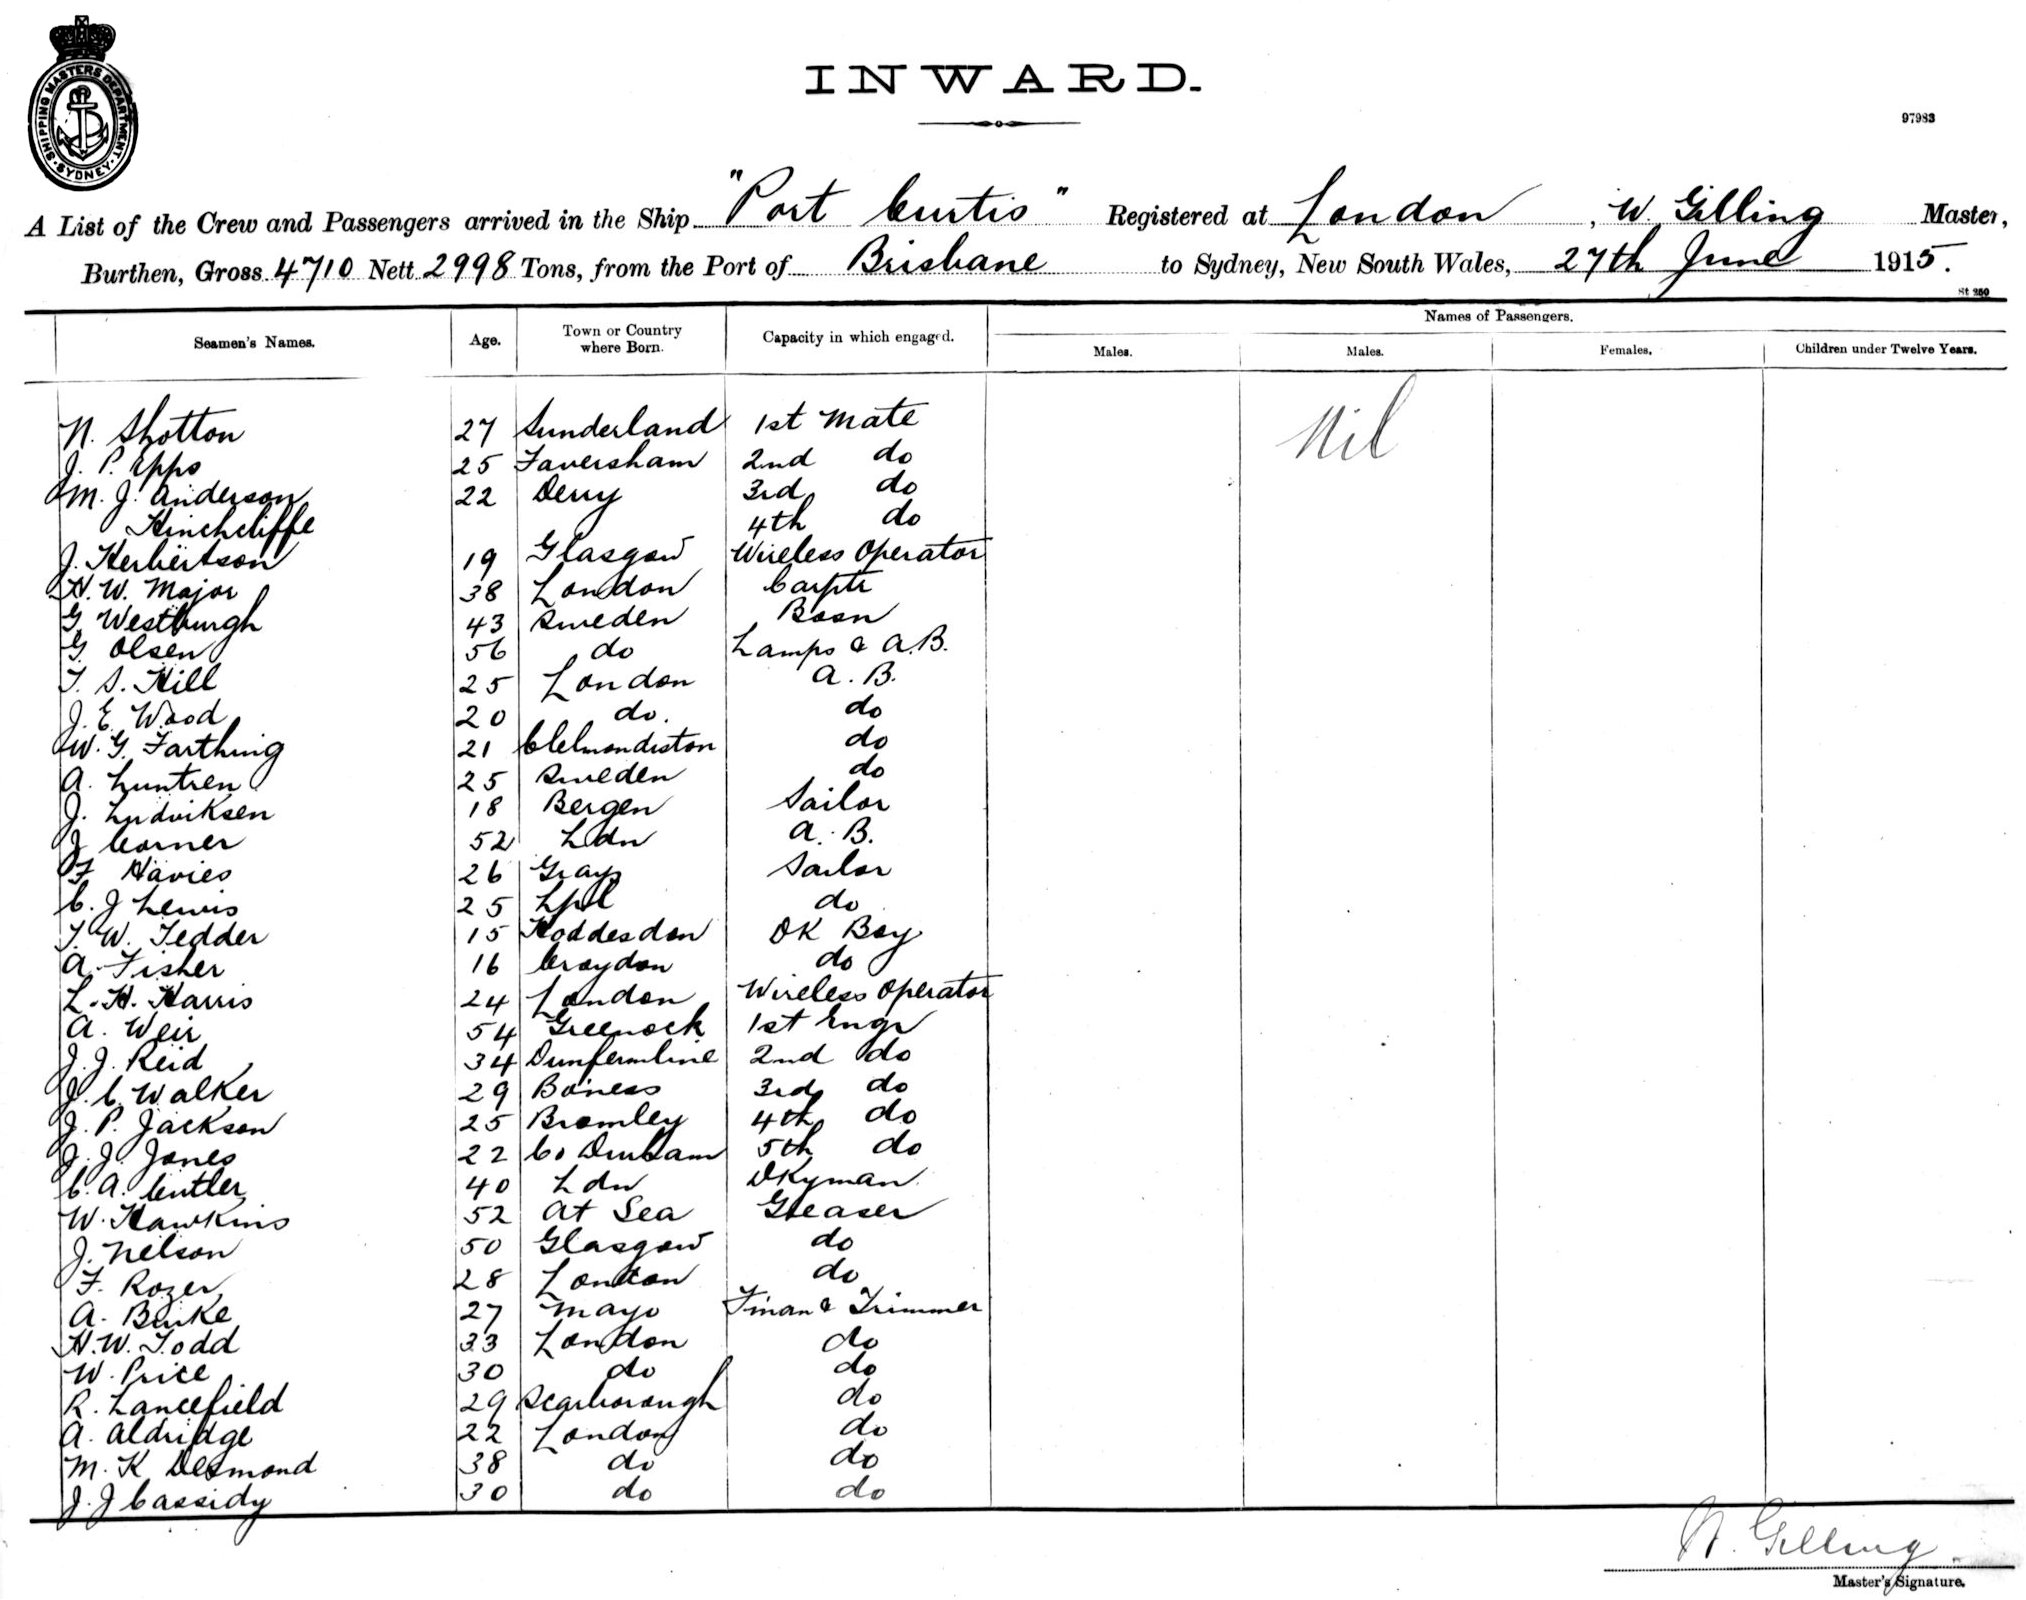 SHIPPING MASTERS DEPARTMENT · SYDNEY ·
INWARD.
97983
A List of the Crew and Passengers arrived in the Ship "Port Curtis" Registered at London, W. Gilling Master,
Burthen, Gross 4710 Nett 2998 Tons, from the Port of Brisbane to Sydney, New South Wales, 27th June 1915.
St 250
Seamen's Names. Age. Town or Country where Born. Capacity in which engaged. Names of Passengers.
Males. Males. Females. Children under Twelve Years.
N. Shotton 27 Sunderland 1st Mate Nil
J. P. Epps 25 Faversham 2nd do
M. J. Anderson 22 Derry 3rd do
Hinchcliffe 4th do
J. Herbertson 19 Glasgow Wireless Operator
H. W. Major 38 London Carptr
G. Westburgh 43 Sweden Bosn
G. Olsen 56 do Lamps & A.B.
T. S. Hill 25 London A.B.
J. E. Wood 20 do. do
W. G. Farthing 21 Chelmondiston do
A. Luntren 25 Sweden do
J. Ludviksen 18 Bergen Sailor
J Corner 52 Ldn A.B.
F Davies 26 Grays Sailor
C. J Lewis 25 Lpl do
T. W. Tedder 15 Hoddesdon DK Boy
A. Fisher 16 Croydon do
L. H. Harris 24 London Wireless Operator
A. Weir 54 Greenock 1st Engr
J. J. Reid 34 Dunfermline 2nd do
J. C. Walker 29 Boness 3rd do
J. P. Jackson 25 Bromley 4th do
J. J. Jones 22 Co Durham 5th do
C. A. Cutler 40 Ldn DKyman
W. Hawkins 52 At Sea Greaser
J. Nelson 50 Glasgow do
F. Rozer 28 London do
A. Burke 27 Mayo F'man & Trimmer
H. W. Todd 33 London do
W. Price 30 do do
R. Lancefield 29 Scarborough do
A. Aldridge 22 London do
M. K Desmond 38 do do
J. J Cassidy 30 do do
W. Gilling
Master's Signature.